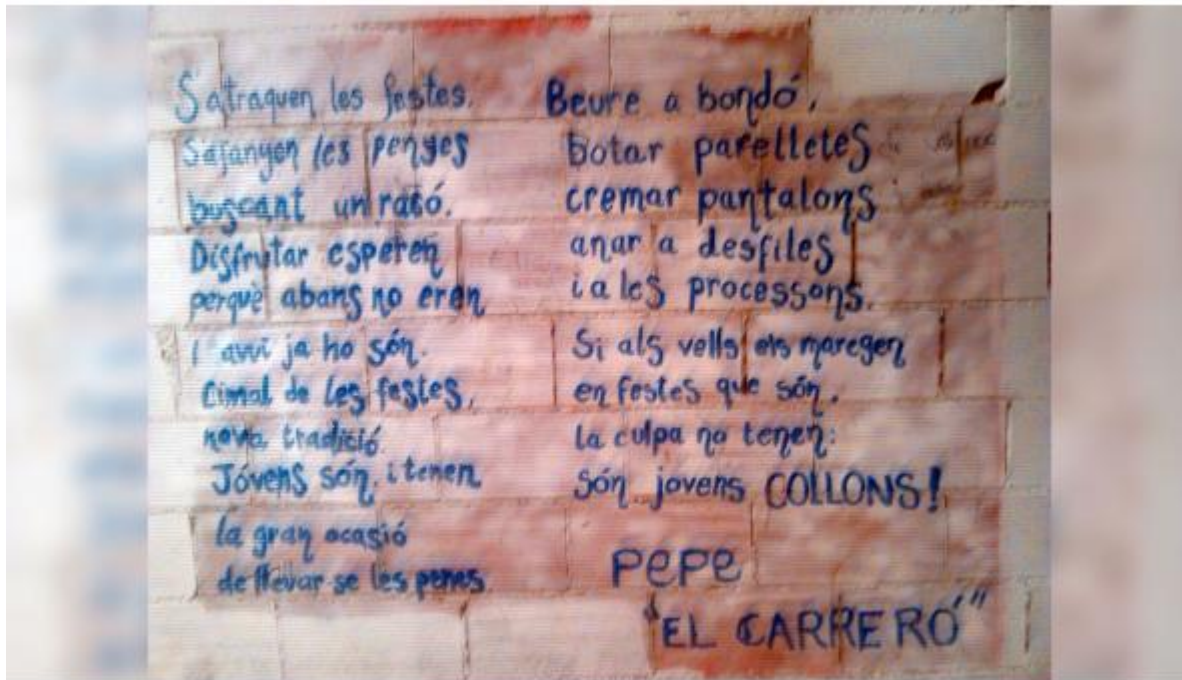 S'atraquen les festes.
S'afanyen les penyes
buscant un racó.
Disfrutar esperen
perquè abans no eren
i avui ja ho són.
Cimal de les festes,
nova tradició.
Jóvens són, i tenen
la gran ocasió
de llevar-se les penes.
Beure a bondó,
botar parelletes
cremar pantalons
anar a desfiles
i a les processons.
Si als vells els maregen
en festes que són,
la culpa no tenen:
són jovens COLLONS!
PEPE
"EL CARRERÓ"